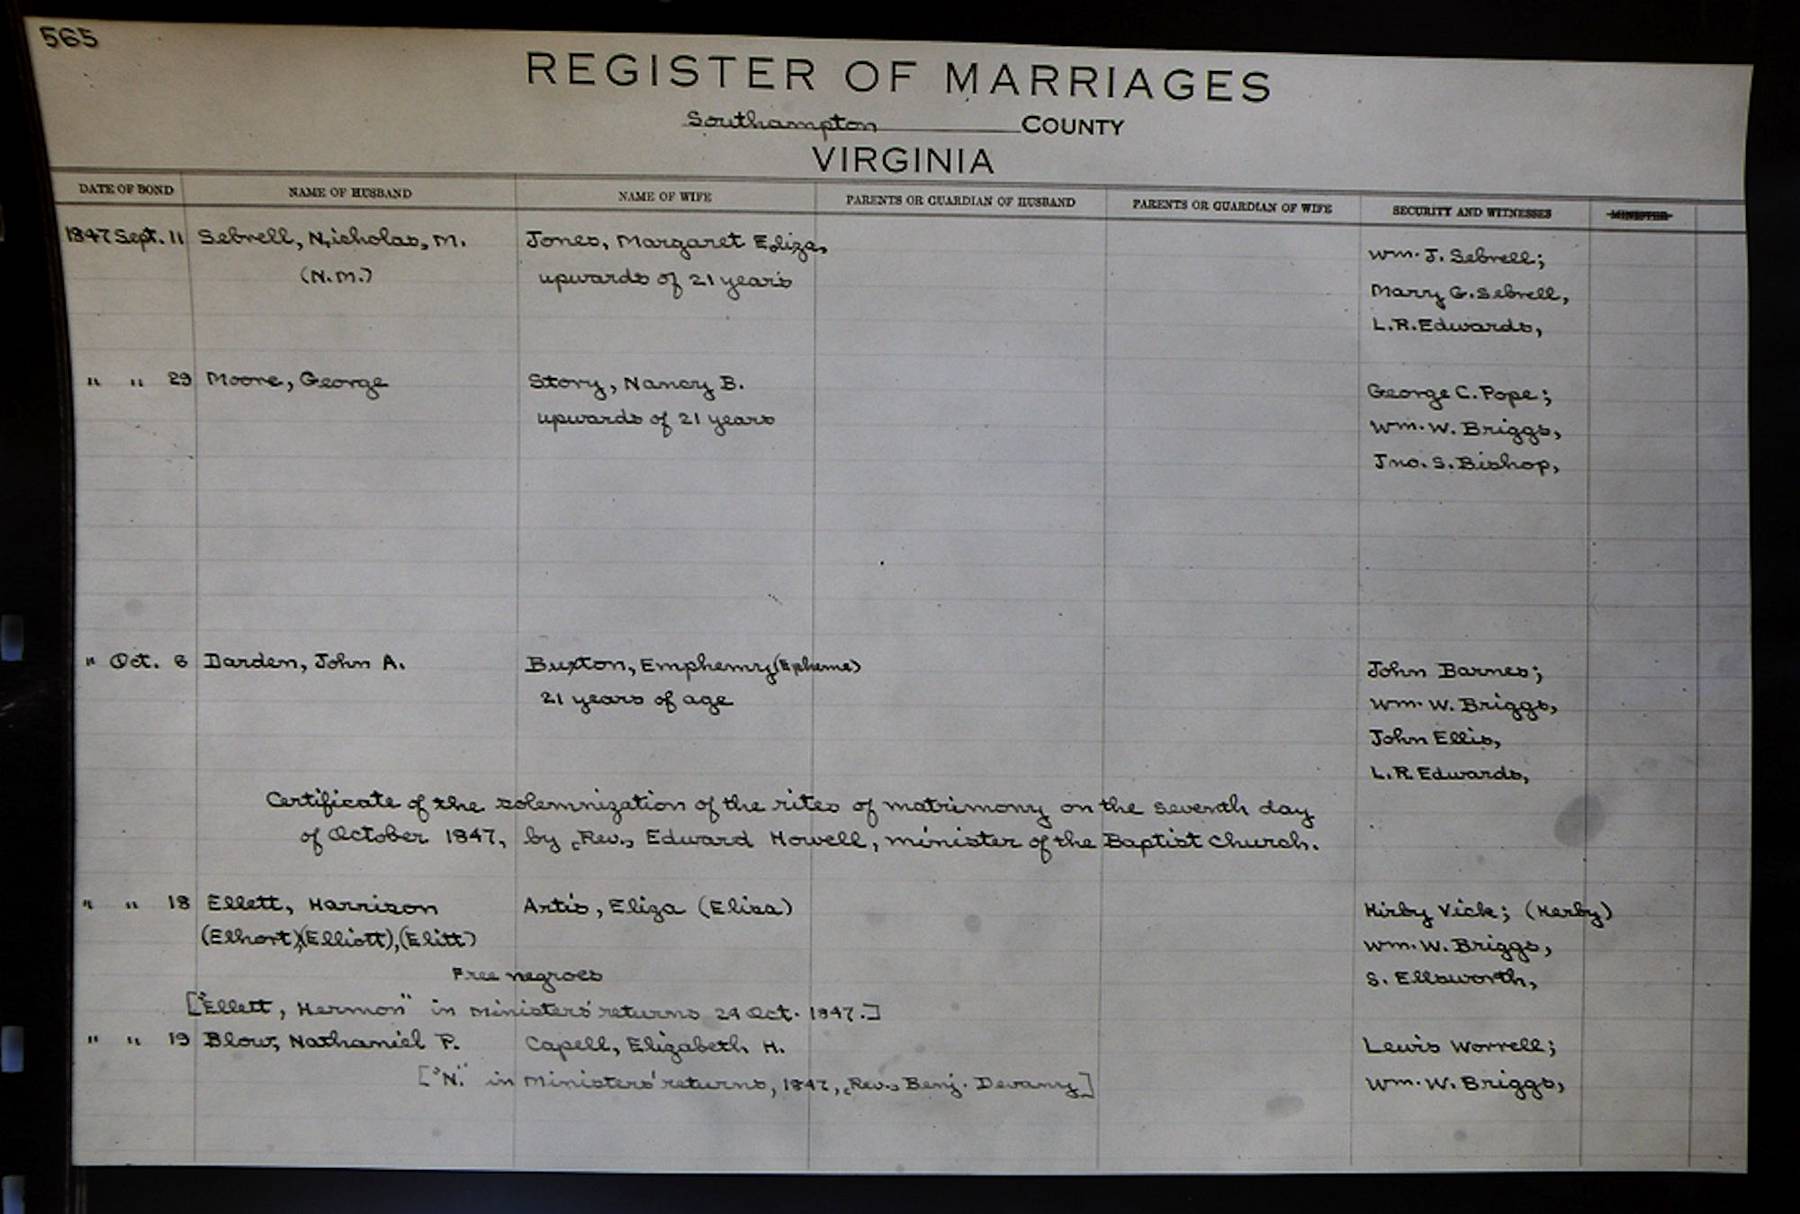 565
REGISTER OF MARRIAGES
Southampton COUNTY
VIRGINIA
DATE OF BOND NAME OF HUSBAND NAME OF WIFE PARENTS OR GUARDIAN OF HUSBAND PARENTS OR GUARDIAN OF WIFE SECURITY AND WITNESSES MINISTER
1847 Sept. 11 Sebrell, Nicholas, M. Jones, Margaret Eliza, Wm. J. Sebrell;
(N.M.) upwards of 21 years Mary G. Sebrell,
L.R. Edwards,
" " 29 Moore, George Story, Nancy B. George C. Pope;
upwards of 21 years Wm. W. Briggs,
Jno. S. Bishop,
" Oct. 6 Darden, John A. Buxton, Emphemy (Epheme) John Barnes;
21 years of age Wm. W. Briggs,
John Ellis,
L.R. Edwards,
Certificate of the solemnization of the rites of matrimony on the seventh day
of October 1847, by Rev., Edward Howell, minister of the Baptist Church.
" " 18 Ellett, Harrison Artis, Eliza (Elisa) Kirby Vick; (Kerby)
(Elhort),(Elliott),(Elitt) Wm. W. Briggs,
Free negroes S. Ellsworth,
["Ellett, Hermon" in Ministers' returns 24 Oct. 1847.]
" " 19 Blow, Nathaniel P. Capell, Elizabeth H. Lewis Worrell;
["N." in Ministers' returns, 1847, Rev. Benj. Devany] Wm. W. Briggs,